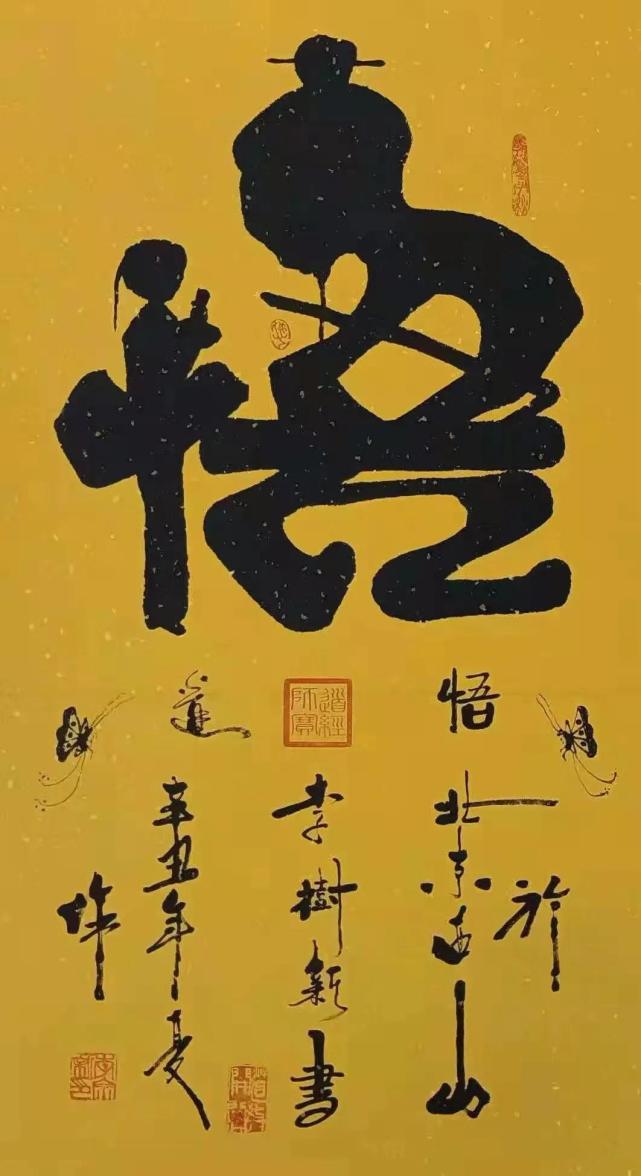 悟
悟
道經
師寶
道
於
北京西山
李樹新書
辛丑年夏
作